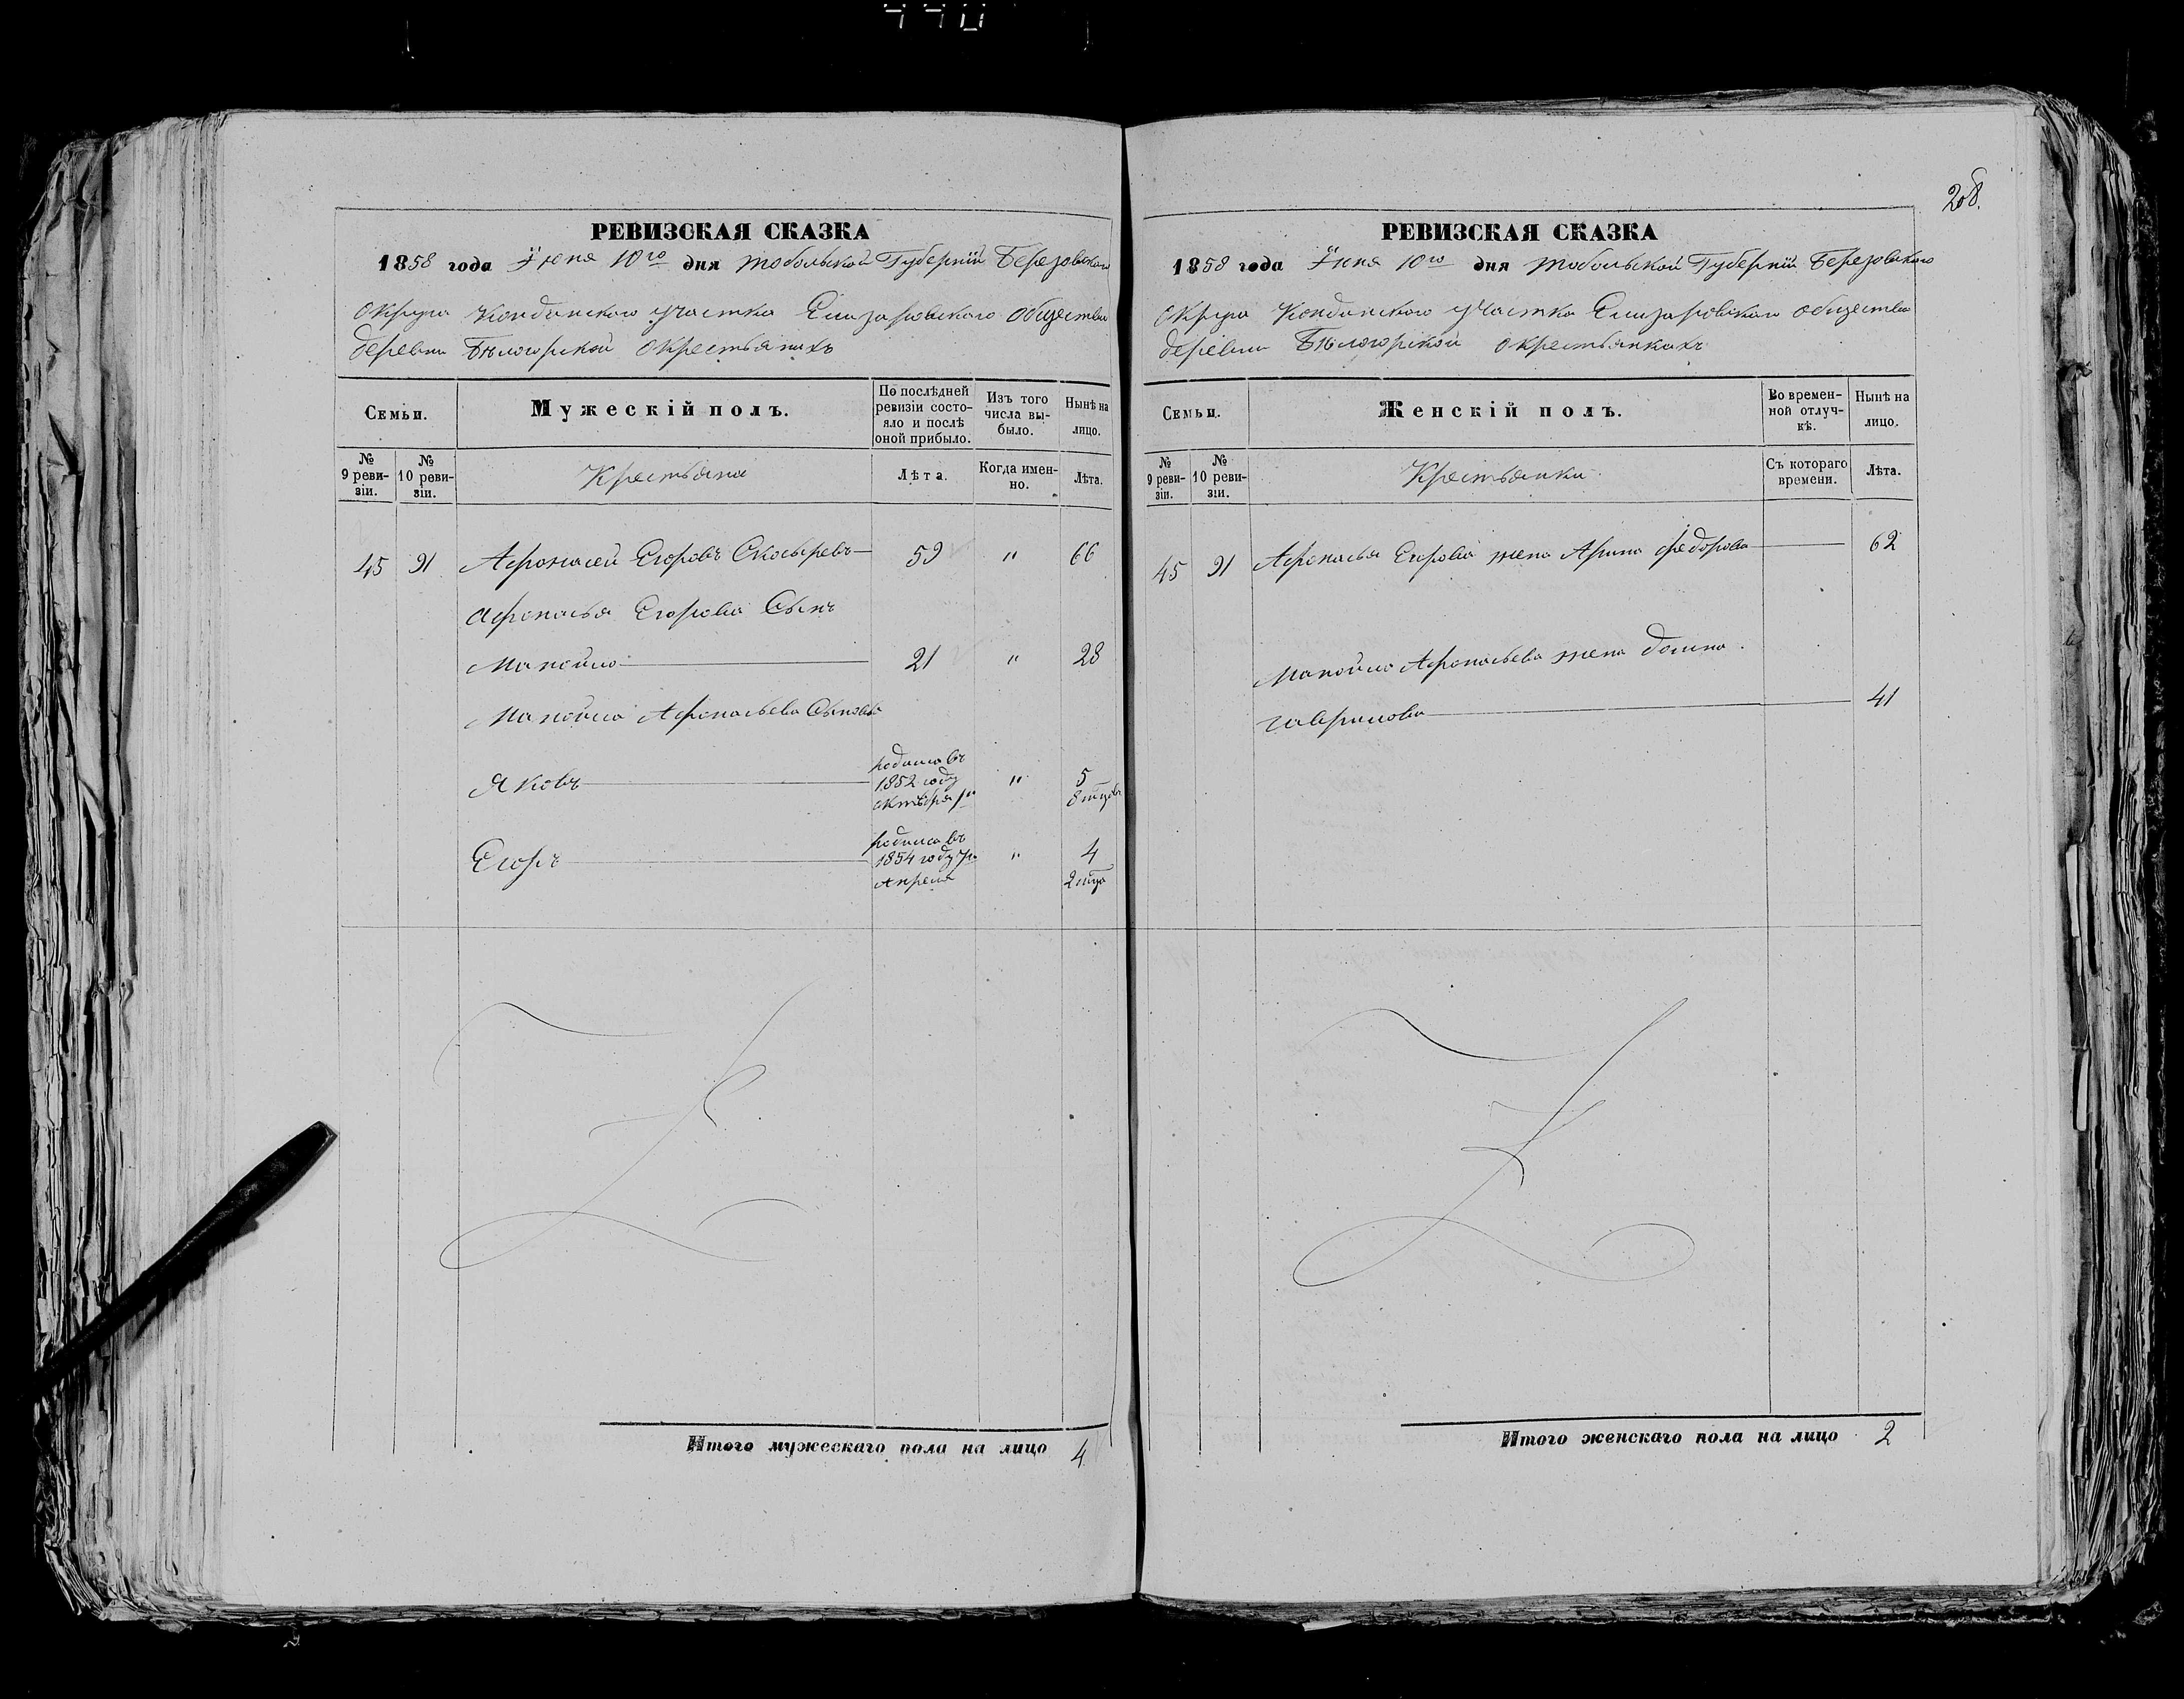 208.
РЕВИЗСКАЯ СКАЗКА
1858 года Іюня 10го дня Тобольской Губерніи Березовскаго
округа Кондинскаго участка Елизаровскаго общества
деревни Бѣлогорской о крестьянахъ
Семьи.
Мужескій полъ.
По послѣдней
ревизіи состо-
яло и послѣ
оной прибыло.
Изъ того
числа вы-
было.
Нынѣ на
лицо.
№
9 реви-
зіи.
№
10 реви-
зіи.
Крестьяна
Лѣта.
Когда имен-
но.
Лѣта.
45 91 Афонасей Егоровъ Скосыревъ 59 " 66
Афонасья Егорова Сынъ
Манойло 21 " 28
Манойла Афонасьева Сыновья
Яковъ родился въ 1852 году октября " 5 8 мцовъ
Егоръ родился въ 1854 году Апреля " 4 2 мца
Итого мужескаго пола на лицо 4
РЕВИЗСКАЯ СКАЗКА
1858 года Іюня 10го дня Тобольской Губерніи Березовскаго
округа Кондинскаго участка Елизаровскаго общества
деревни Бѣлогорской о крестьянкахъ
Семьи.
Женскій полъ.
Во времен-
ной отлуч-
кѣ.
Нынѣ на
лицо.
№
9 реви-
зіи.
№
10 реви-
зіи.
Крестьянки
Съ котораго
времени.
Лѣта.
45 91 Афонасья Егорова жена Арина Федорова 62
Манойла Афонасьева жена Домна
Гаврилова 41
Итого женскаго пола на лицо 2